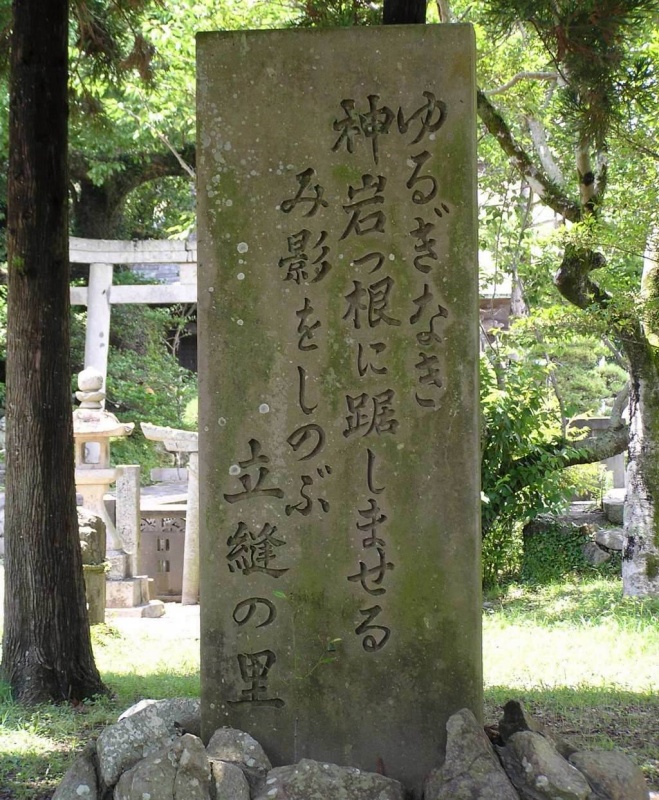 ゆるぎなき
神岩っ根に踞しませる
み影をしのぶ
立縫の里